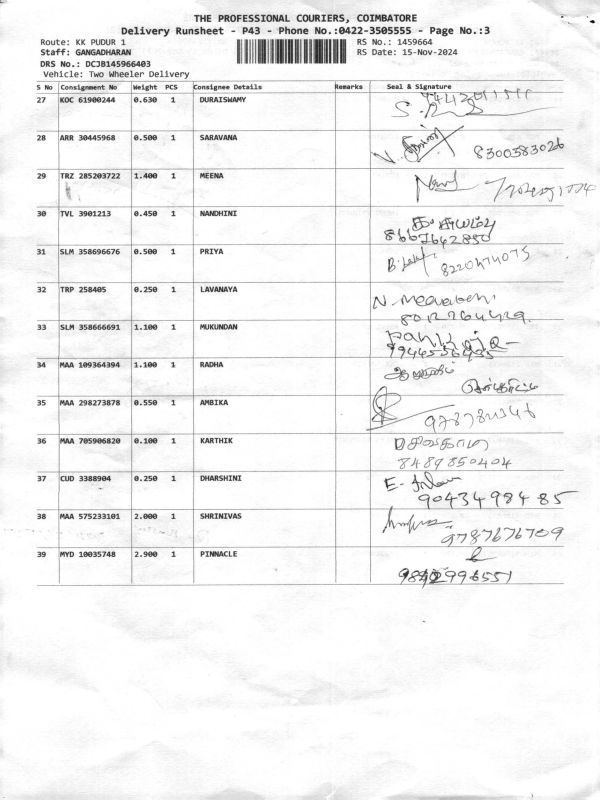 THE PROFESSIONAL COURIERS, COIMBATORE
Delivery Runsheet - P43 - Phone No.:0422-3505555 - Page No.:3
Route: KK PUDUR 1 RS No.: 1459664
Staff: GANGADHARAN RS Date: 15-Nov-2024
DRS No.: DCJB145966403
Vehicle: Two Wheeler Delivery
S No Consignment No Weight PCS Consignee Details Remarks Seal & Signature
27 KOC 61900244 0.630 1 DURAISWAMY
28 ARR 30445968 0.500 1 SARAVANA
8300383026
29 TRZ 285203722 1.400 1 MEENA
30 TVL 3901213 0.450 1 NANDHINI
8667642850
31 SLM 358696676 0.500 1 PRIYA
8220474075
32 TRP 258405 0.250 1 LAVANAYA
33 SLM 358666691 1.100 1 MUKUNDAN
34 MAA 109364394 1.100 1 RADHA
35 MAA 298273878 0.550 1 AMBIKA
36 MAA 705906820 0.100 1 KARTHIK
8489850404
37 CUD 3388904 0.250 1 DHARSHINI
9043498485
38 MAA 575233101 2.000 1 SHRINIVAS
9787676709
39 MYD 10035748 2.900 1 PINNACLE